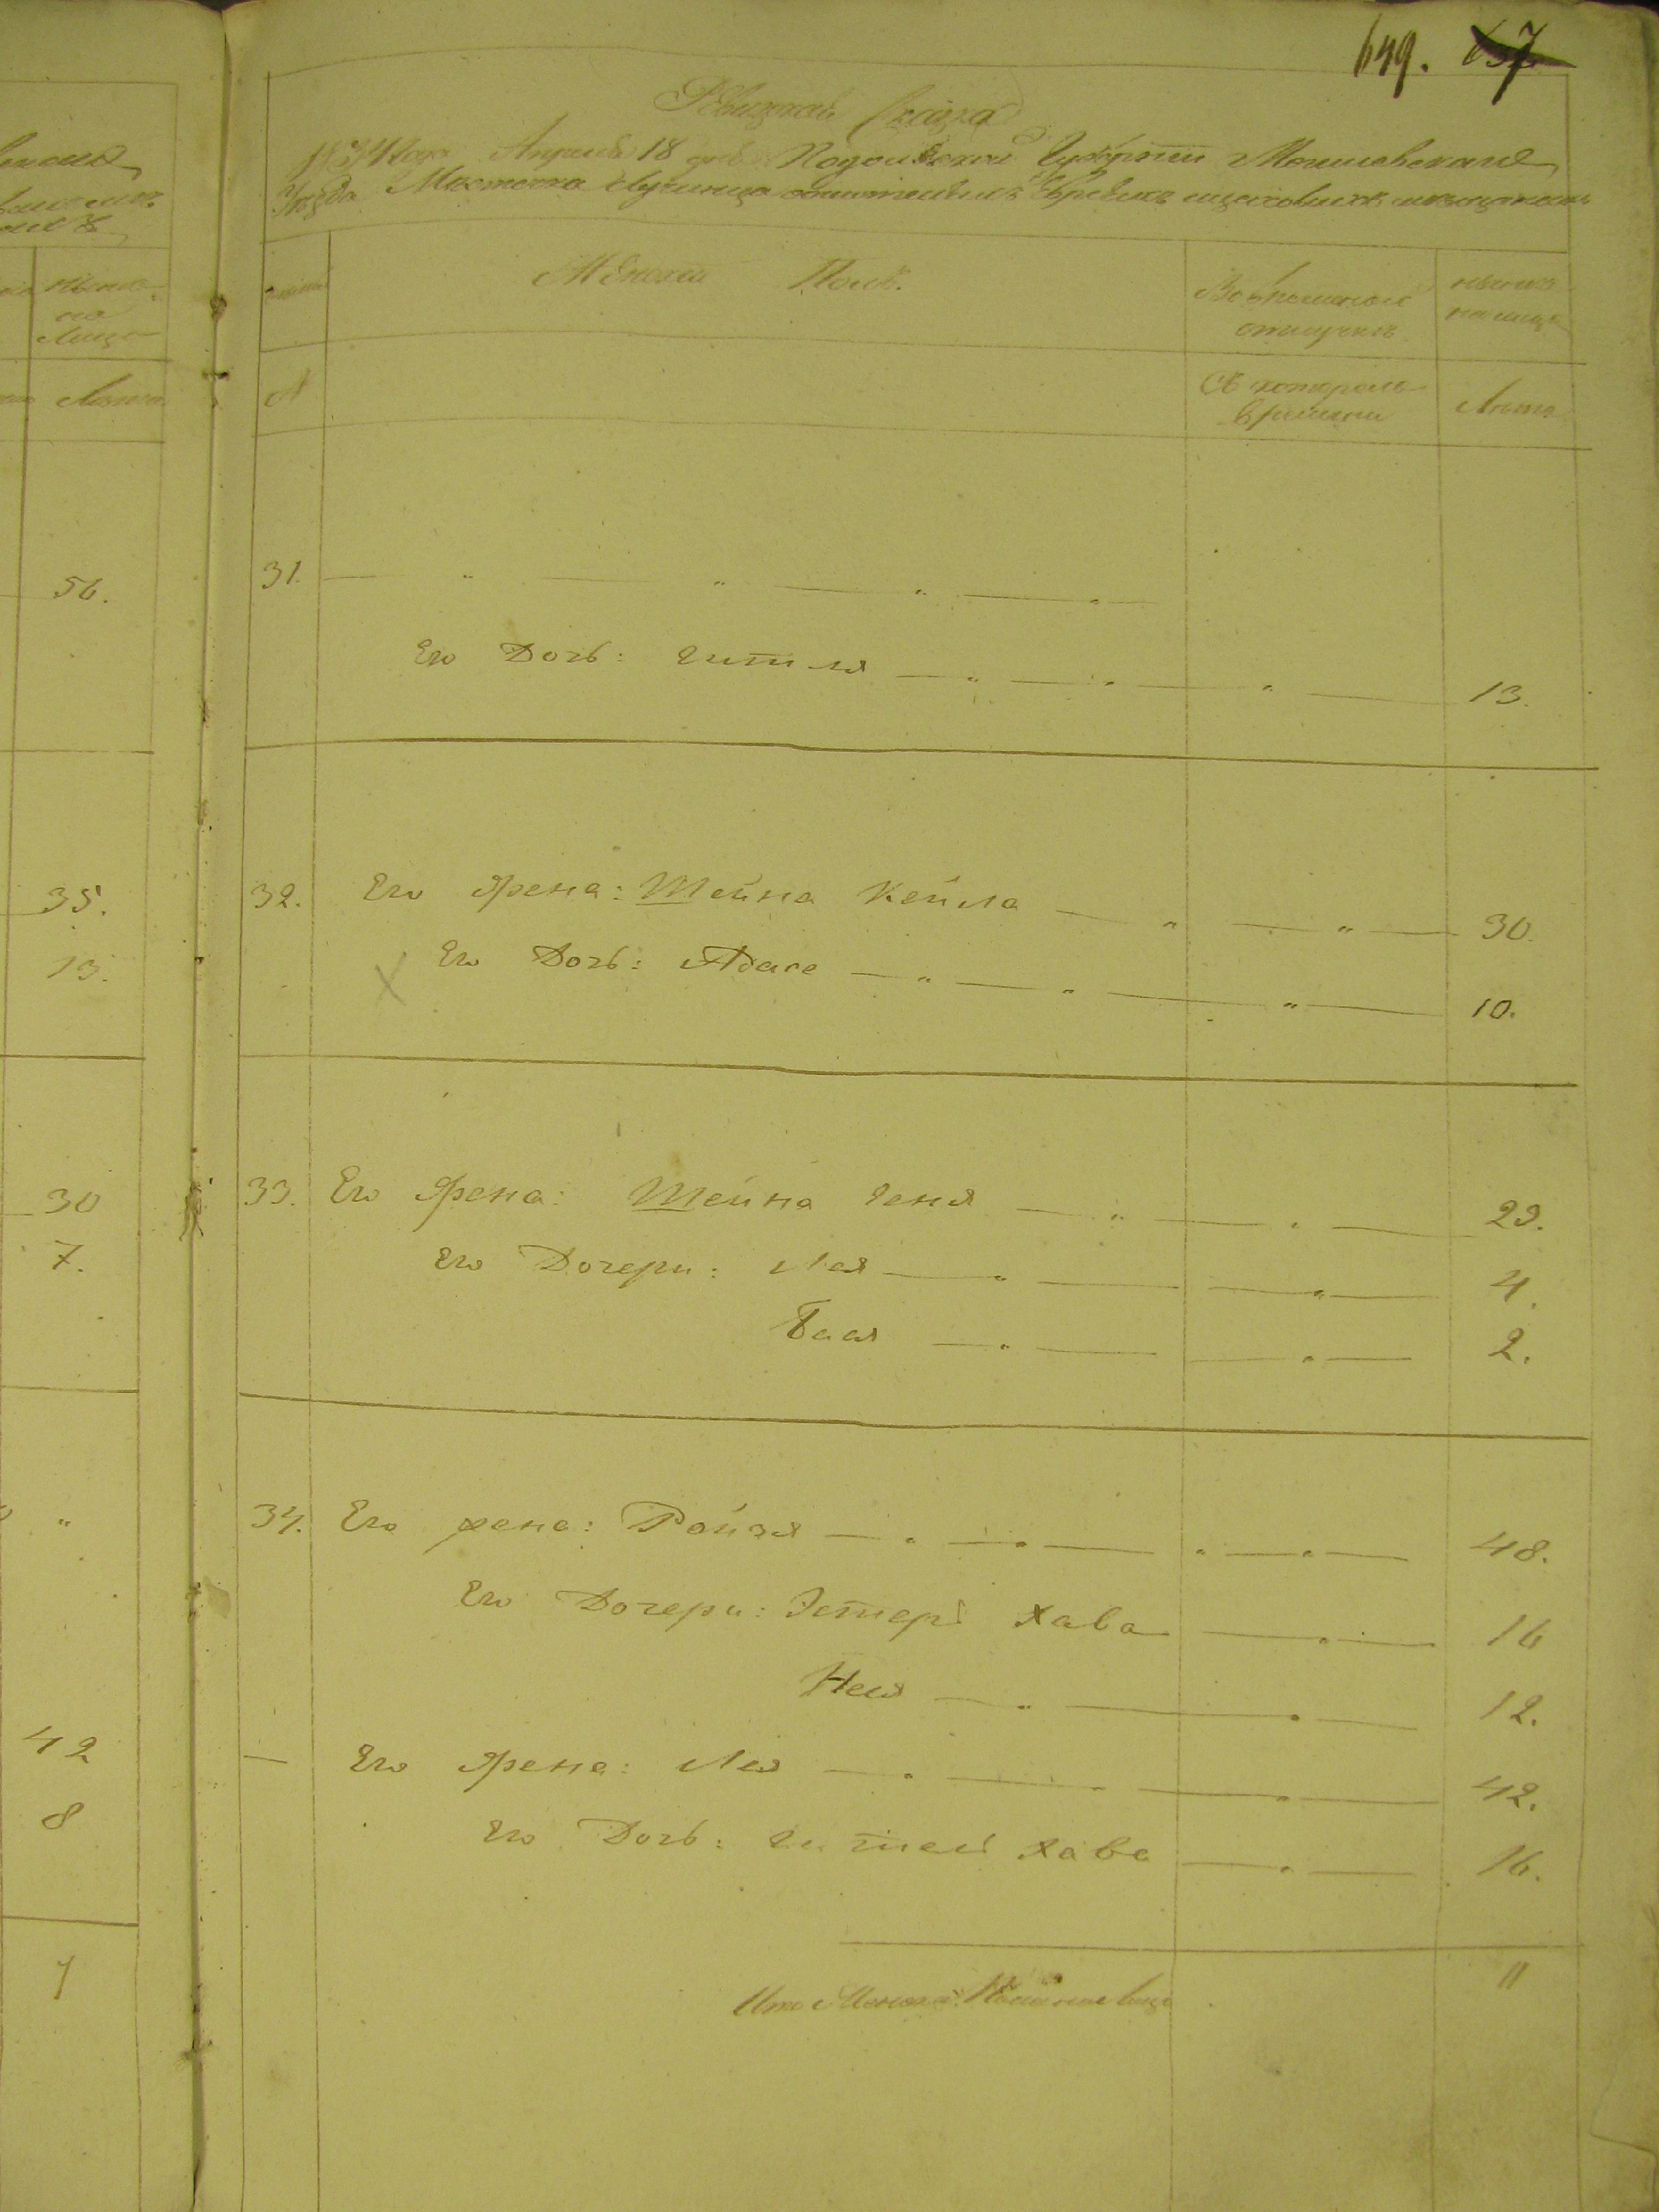 649. 657
Ревизская сказка
1834 года Апреля 18 дня Подольской Губернии Могилевскаго
Уезда Местечка Лучинца Евреямъ
Женской Полъ.
Во временной отлучке
ныне на лицо
№
Съ котораго времени
Лета
31. — " — " — " — " —
Его Дочь: Гитля — " — " — " — 13.
32. Его Жена: Шейна Кейла — " — " — 30.
Его Дочь: Адасе — " — " — " — 10.
33. Его Жена: Шейна Геня — " — " — 29.
Его Дочери: Лея — " — " — 4.
Бася — " — " — 2.
34. Его жена: Ройзя — " — " — " — " — 48.
Его Дочери: Эстеръ Хава — " — 16
Неся — " — " — 12.
— Его Жена: Лея — " — " — " — 42.
Его Дочь: Гитель Хава — " — 16.
Итого Женска: Пола на лицо 11
ныне
на
лицо
Лета
56.
35.
13.
30
7.
"
42
8
7